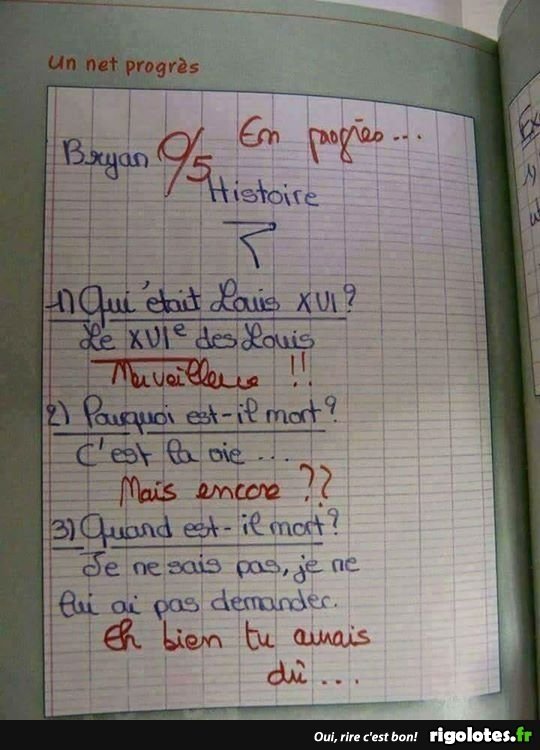 Un net progrès
Bryan 0/5 En progrès...
Histoire
1) Qui était Louis XVI ?
Le XVIe des Louis
Merveilleux !!
2) Pourquoi est-il mort ?
C'est la vie ...
Mais encore ??
3) Quand est-il mort ?
Je ne sais pas, je ne
lui ai pas demander.
Eh bien tu aurais
dû ...
Oui, rire c'est bon! rigolotes.fr